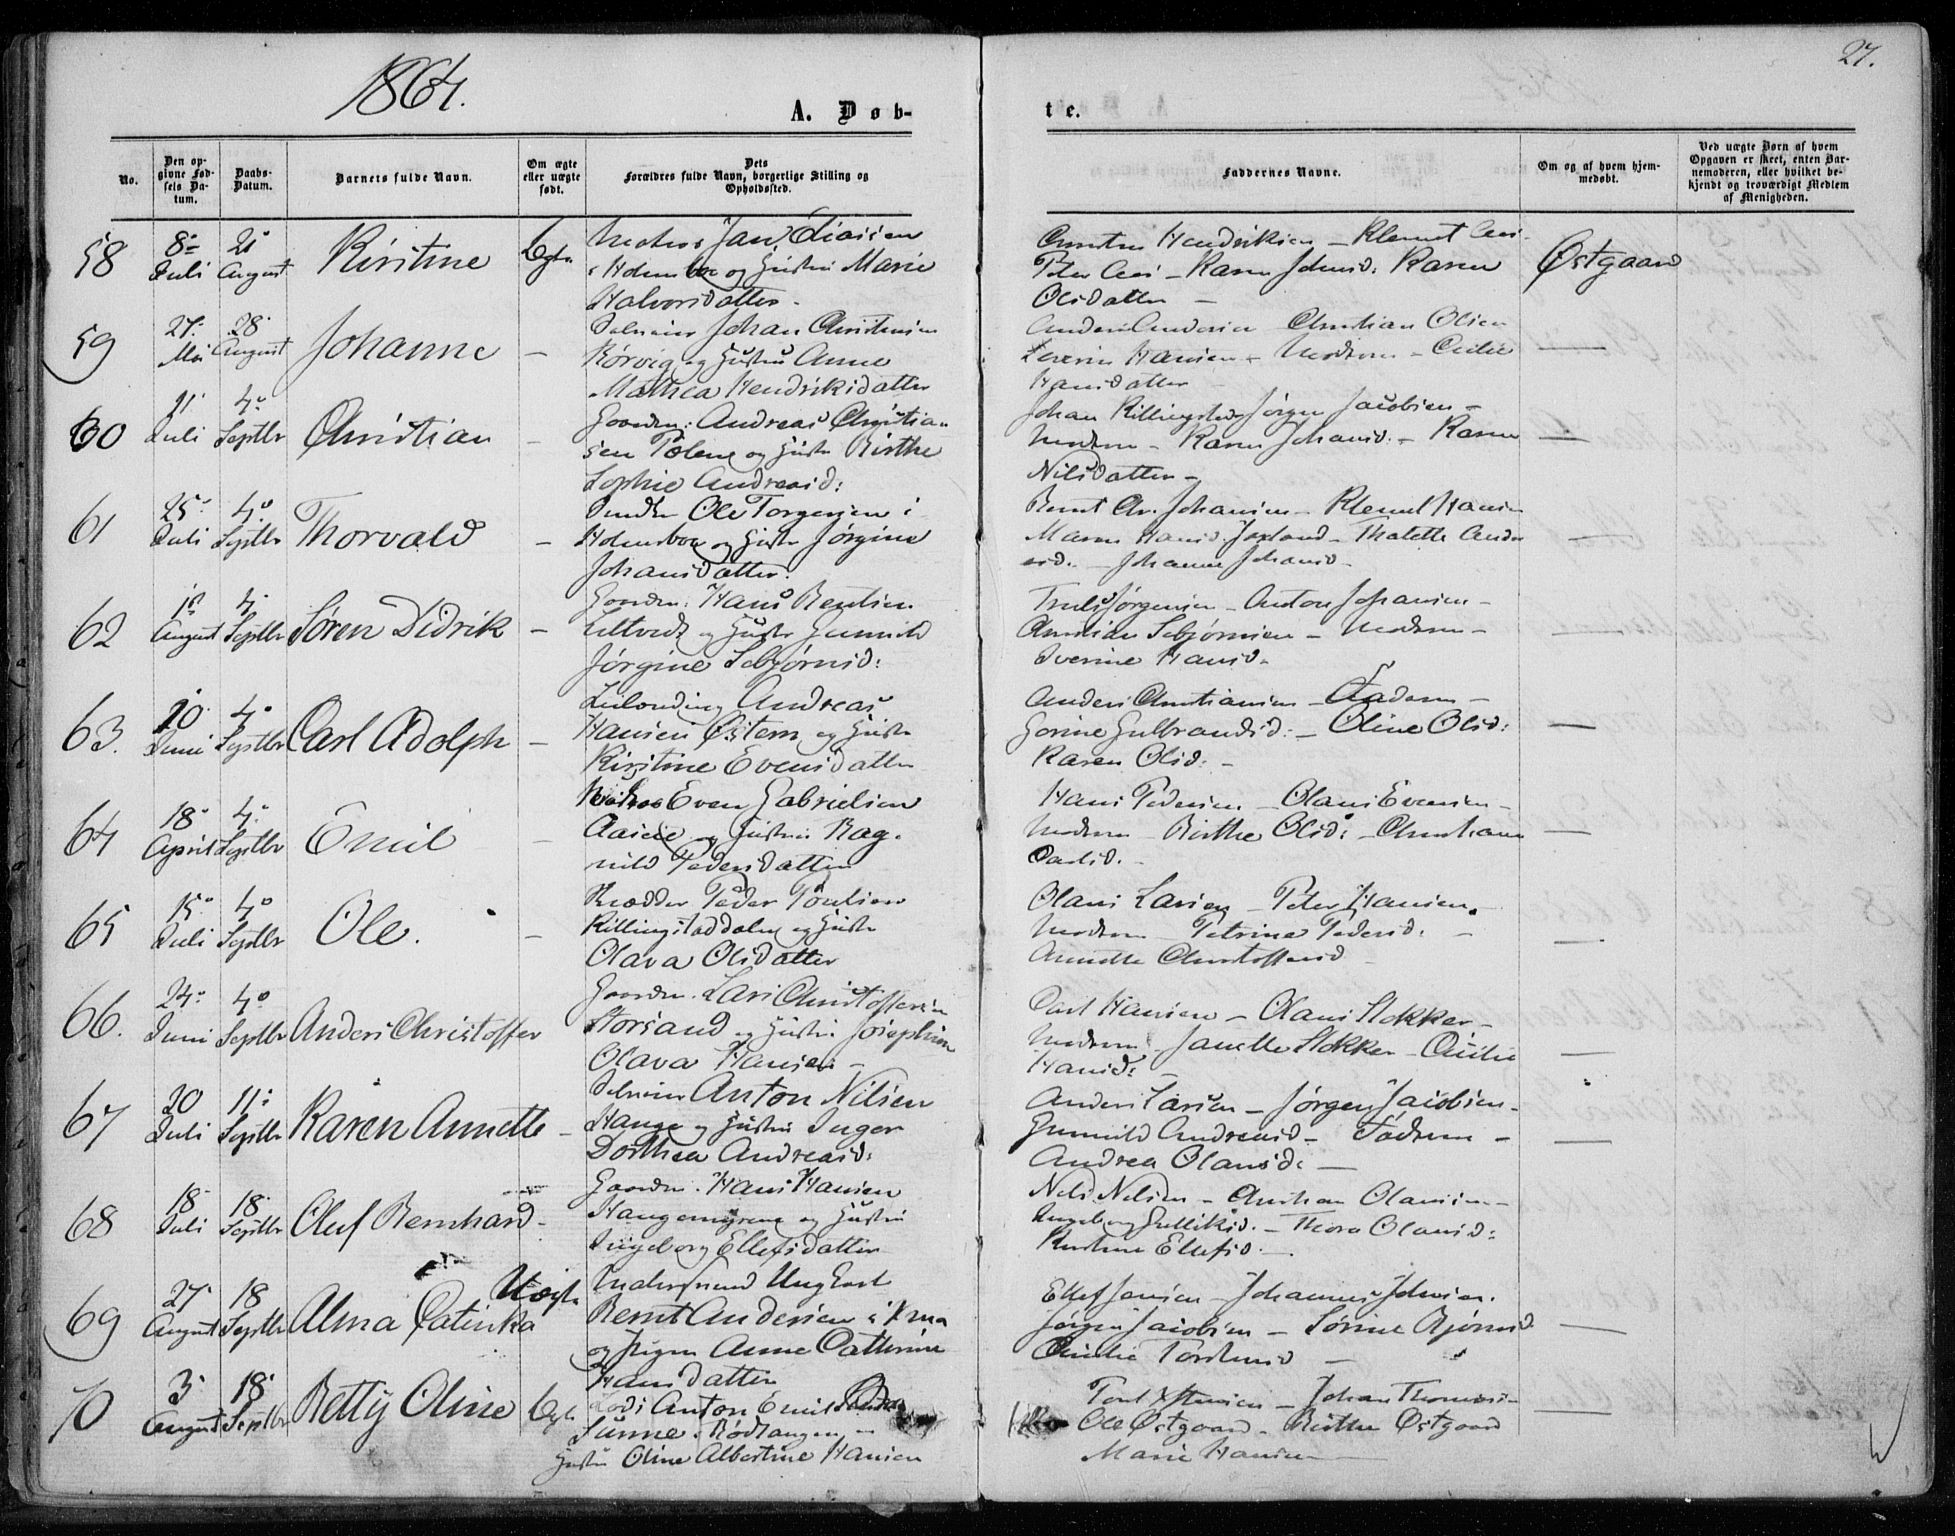 1864.
27.
A. Døb-
te.
No.
Den opgivne Fødsels Datum.
Daabs-Datum.
Barnets fulde Navn.
Om ægte eller uægte født.
Dets
Forældres fulde Navn, borgerlige Stilling og Opholdssted.
Faddernes Navne.
Om og af hvem hjemmedøbt.
Ved uægte Børn af hvem Opgaven er skeet, enten Barnemoderen, eller hvilket bekjendt og troværdigt Medlem af Menigheden.
58
8 Juli
21 August
Kirstine
Ægte
Matros Jan
Holmsboe og Hustru Marie
Halvorsdatter
Hendriksen - Klemet
Peter - Karen Johnsd: Karen
Olsdatter -
Østgaard
59
27 Mai
28 August
Johanne
-
Johan Christensen
Rørvig og Hustru Anne
Mathea Hendriksdatter
Anders Andersen - Christian Olsen
Severin Hansen - Modren - Cecilie
Hansdatter
—
60
11 Juli
4 Septbr
Christian
-
Gaardm: Andreas Christian
sen Tolene og Hustr Birthe
Sophie Andreasd:
Johan Killingstad Jørgen Jacobsen -
Modren - Karen Johansd. - Karen
Nilsdatter -
—
61
25 Juli
4 Septbr
Thorvald
-
Ole Torgersen i
Holmsboe og Hustr Jørgine
Johansdatter.
Bernt Chr. Johansen - Klemet Hansen
Maren Hansd. - Thalette Andre
asd. - Johanne Johansd -
—
62
1 August
4 Septbr
Søren Didrik
-
Gaardm: Hans Bentsen
og Hustr Gunnild
Jørgine Sebjørnsd:
Truls Jørgensen - Anton Johansen -
Christian Sebjørnsen - Modren -
Iverine Hansd.
—
63.
20 Juni
4 Septbr
Carl Adolph
-
Leilending Andreas
Hansen Østern og Hustr
Kirstine Evensdatter
Anders Christiansen - Fadren -
Gorine Gulbrandsd: - Oline Olsd:
Karen Olsd: -
—
64
18 April
4 Septbr
Emil
-
Matros Even Gabrielsen
og Hustru Rag-
nild Pedersdatter
Hans Pedersen - Olaus Evensen -
Modren - Birthe Olsd: - Christiane
Carlsd. -
—
65
15 Juli
4 Septbr
Ole.
-
Skrædder Peder Poulsen
Killingstaddalen og Hustr
Olava Olsdatter
Olaus Larsen - Peter Hansen.
Modren - Petrine Pedersd. -
Annette Christoffersd
—
66.
24 Juni
4 Septbr
Anders Christoffer
Gaardm. Lars Christoffersen
Storsand og Hustru Josephine
Olava Hansen -
Carl Hansen - Olaus Stokker -
Modren - Janette Stokker - Cecilie
Hansd:
—
67
20 Juli
11 Septbr
Karen Annette
-
Anton Nilsen
Hauge og Hustru Inger
Dorthea Andreasd:
Anders Larsen - Jørgen Jacobsen -
Gunnild Andreasd - Fadren -
Andrea Olausd: —
—
68
18 Juli
18 Septbr
Oluf Bernhard
-
Gaardm. Hans Hansen
Haugemyrene og Hustru
Ingeborg Ellefsdatter
Nels Nelsen - Christian Olaussen -
Ingeborg Gulliksd. - Thora Olausd:
Kirstine Ellefsd. -
69
27 August
18 Septbr
Alma Catinka
Uægte
Ungkarl
Bernt Andersen i Krna
og Pigen Anne Cathrine
Hansdatter
Ellef Jensen - Johannes Johnsen.
Jørgen Jacobsen - Sørine Bjørnsd.
Cecilie Torstensd -
—
70
3 August
18 Septbr
Betty Oline
Ægte
Lods Anton Emil
Sunne, Rødtangen -
Hustru Oline Albertine Hansen
- Johan Thomas
Ole Østgaard - Birthe Østgaard
Marie Hansen
—